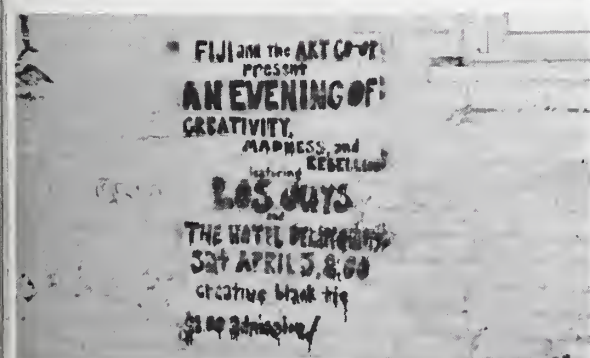 FIJI and the ART CO-OP
present
AN EVENING OF:
CREATIVITY,
MADNESS, and
REBELLION
featuring
LOS GUYS
and
THE HOTEL
SAT APRIL 5, 8:00
creative black tie
$1.00 admission!